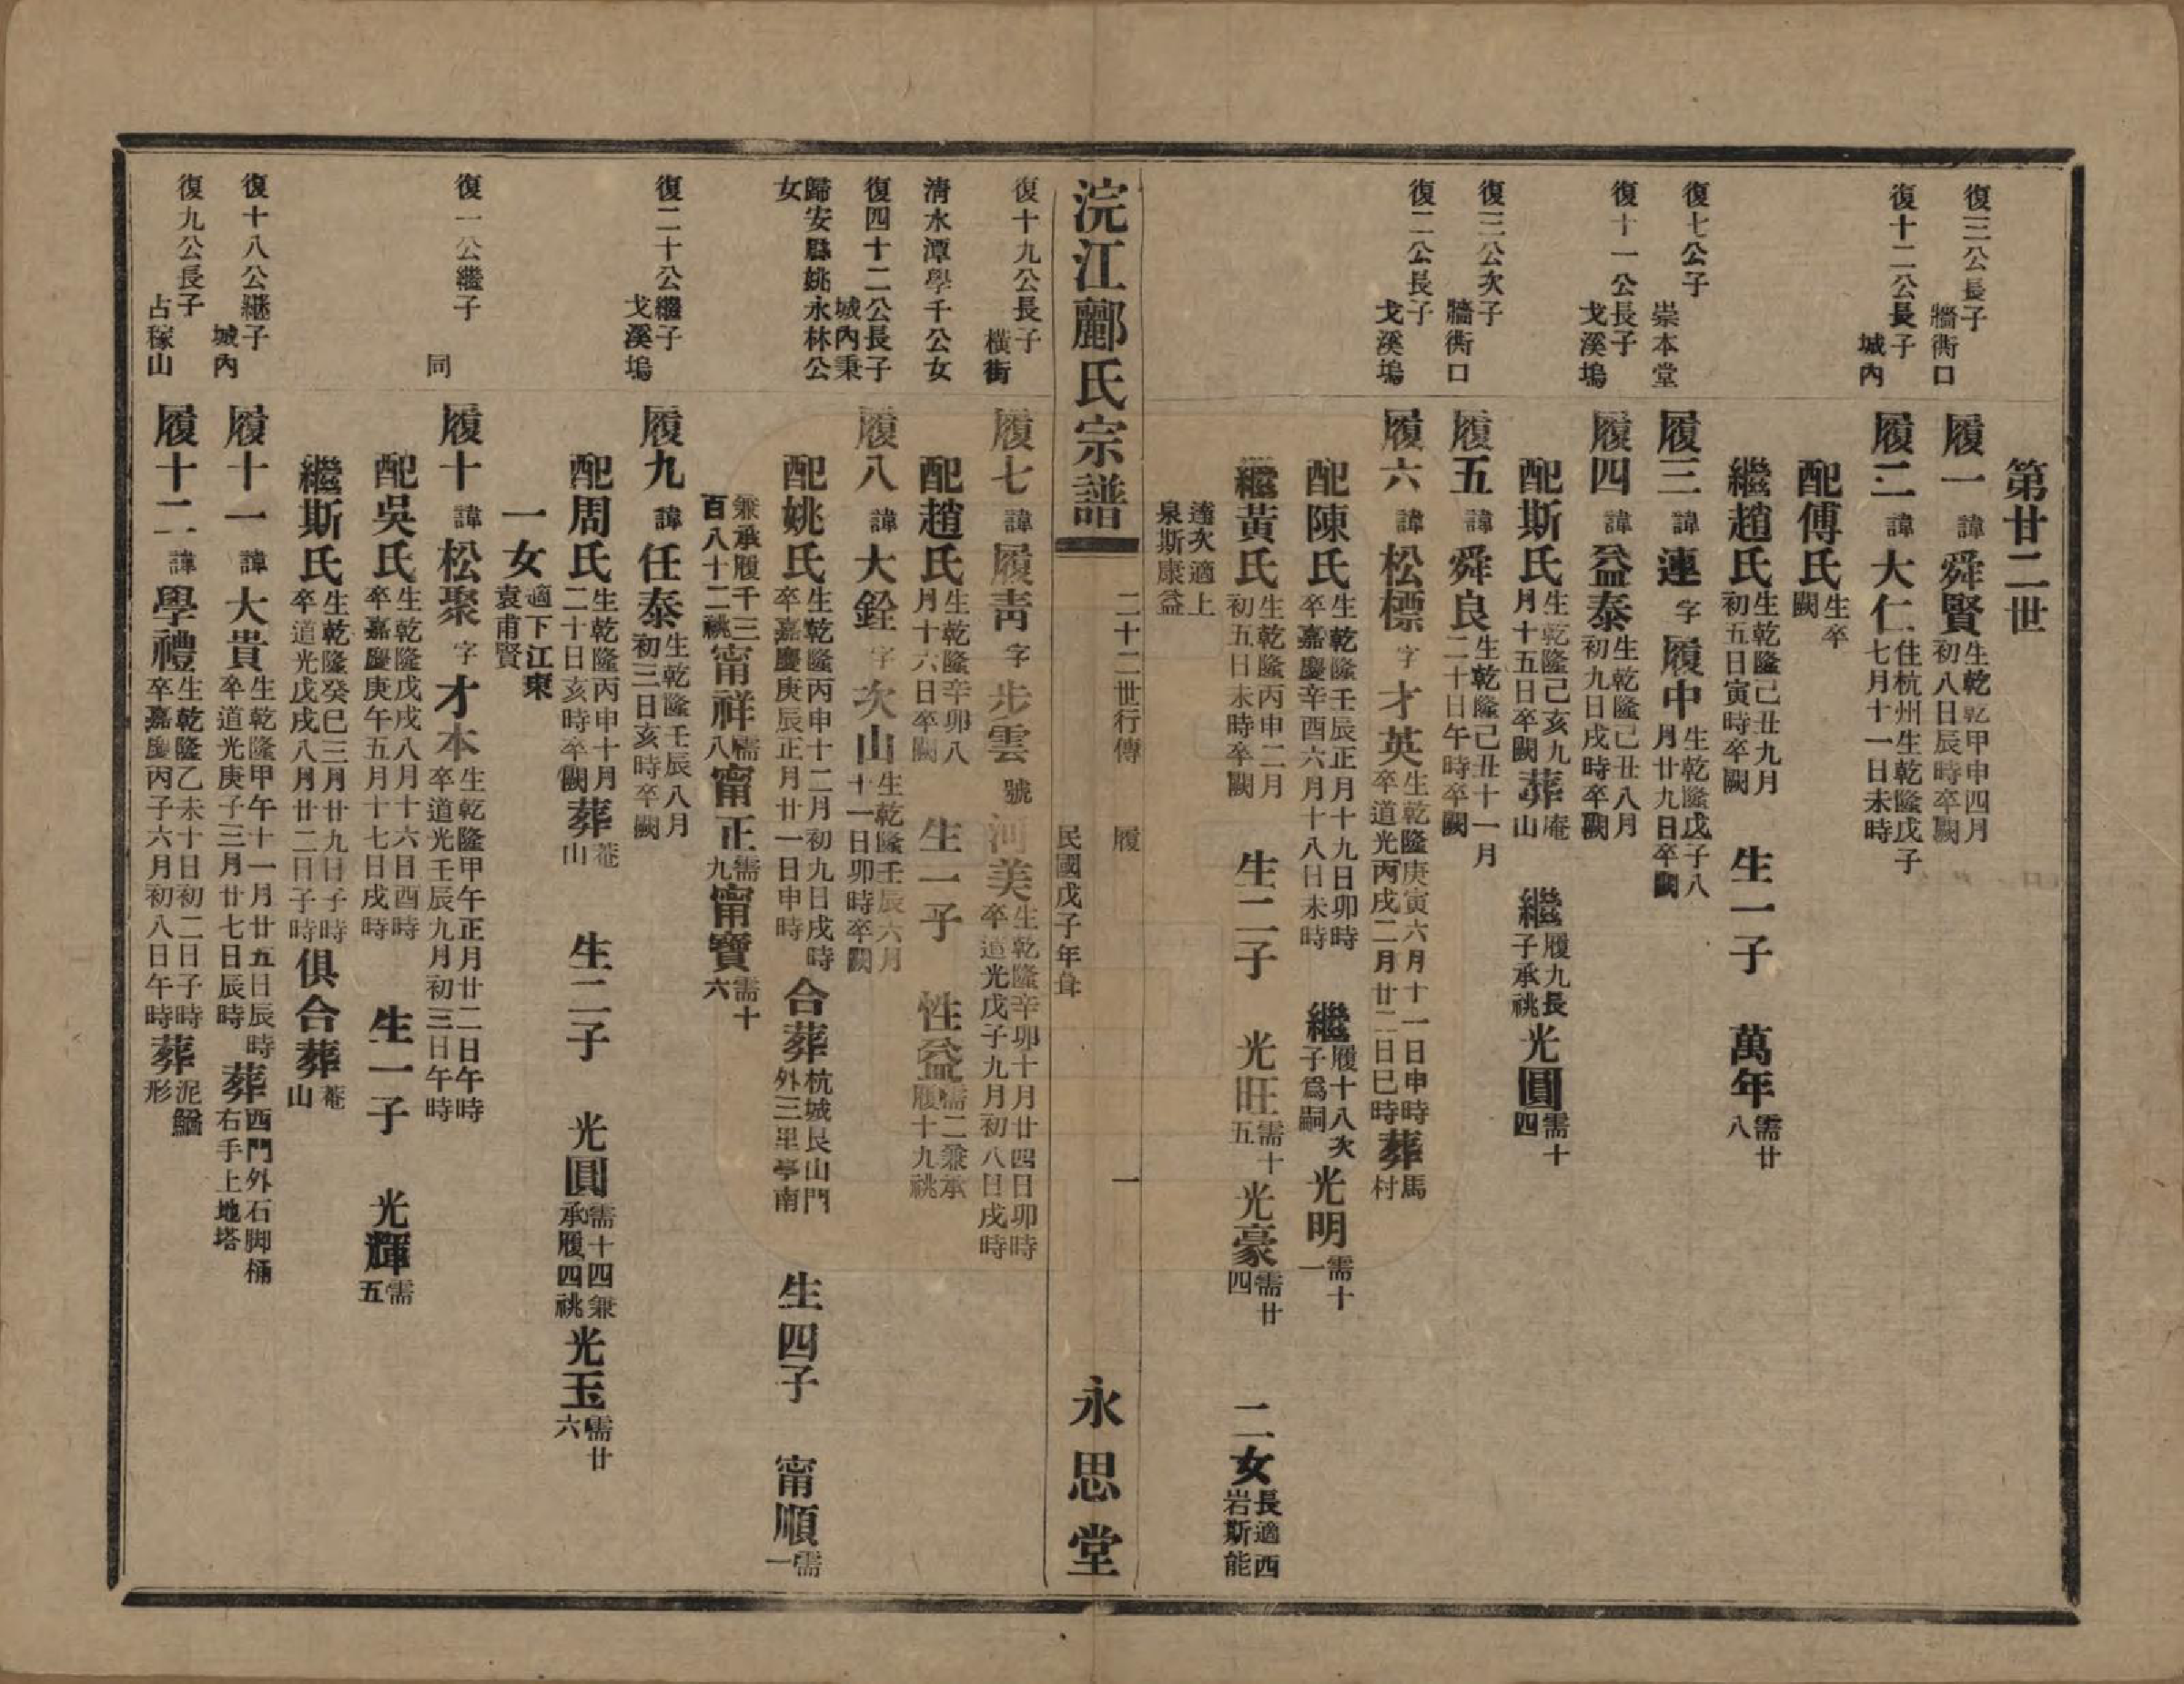 第廿二世
復三公長子 牆衖口
履一 諱 舜賢 生乾隆甲申四月初八日辰時卒闕
復十二公長子 城內
履二 諱 大仁 住杭州生乾隆戊子七月十一日未時
配傅氏 生卒闕
繼趙氏 生乾隆己丑九月初五日寅時卒闕 生一子 萬年 需廿八
復七公子 崇本堂
履三 諱 連 字 履中 生乾隆戊子八月廿九日卒闕
復十一公長子 戈溪塢
履四 諱 益泰 生乾隆己丑八月初九日戌時卒闕
配斯氏 生乾隆己亥九月十五日卒闕 葬庵山 繼履九長子承祧 光圓 需十四
復三公次子 牆衖口
履五 諱 舜良 生乾隆己丑十一月二十日午時卒闕
復二公長子 戈溪塢
履六 諱 松標 字 才英 生乾隆庚寅六月十一日申時卒道光丙戌二月廿二日巳時 葬馬村
配陳氏 生乾隆壬辰正月十九日卯時卒嘉慶辛酉六月十八日未時 繼履十八次子爲嗣 光明 需十一
繼黃氏 生乾隆丙申二月初五日未時卒闕 生二子 光旺 需十五 光豪 需廿四 二女 長適西岩斯能
達次適上泉斯康益
浣江酈氏宗譜 二十二世行傳 履 一 永思堂
民國戊子年葺
復十九公長子 橫街
履七 諱 履青 字 步雲 號 河美 生乾隆辛卯十月廿四日卯時卒道光戊子九月初八日戌時
清水潭學千公女
配趙氏 生乾隆辛卯八月十六日卒闕 生一子 性益 需二兼承履十九祧
復四十二公長子 城內秉
履八 諱 大銓 字 次山 生乾隆壬辰六月十一日卯時卒闕
歸安縣姚永林公女
配姚氏 生乾隆丙申十二月初九日戌時卒嘉慶庚辰正月廿一日申時 合葬杭城艮山門外三里亭南 生四子 甯順 需一
兼承履千三百八十二祧 甯祥 需八 甯正 需九 甯寶 需十六
復二十公繼子 戈溪塢
履九 諱 任泰 生乾隆壬辰八月初三日亥時卒闕
配周氏 生乾隆丙申十月二十日亥時卒闕 葬菴山 生二子 光圓 需十四兼承履四祧 光玉 需廿六
一女 適下江東袁甫賢
復一公繼子 同
履十 諱 松聚 字 才本 生乾隆甲午正月廿二日午時卒道光壬辰九月初三日午時
配吳氏 生乾隆戊戌八月十六日酉時卒嘉慶庚午五月十七日戌時 生一子 光輝 需五
繼斯氏 生乾隆癸巳三月廿九日子時卒道光戊戌八月廿二日子時 俱合葬菴山
復十八公繼子 城內
履十一 諱 大貴 生乾隆甲午十一月廿五日辰時卒道光庚子三月廿七日辰時 葬西門外石脚桶右手上地塔
復九公長子 占稼山
履十二 諱 學禮 生乾隆乙未十日初二日子時卒嘉慶丙子六月初八日午時 葬泥鰌形